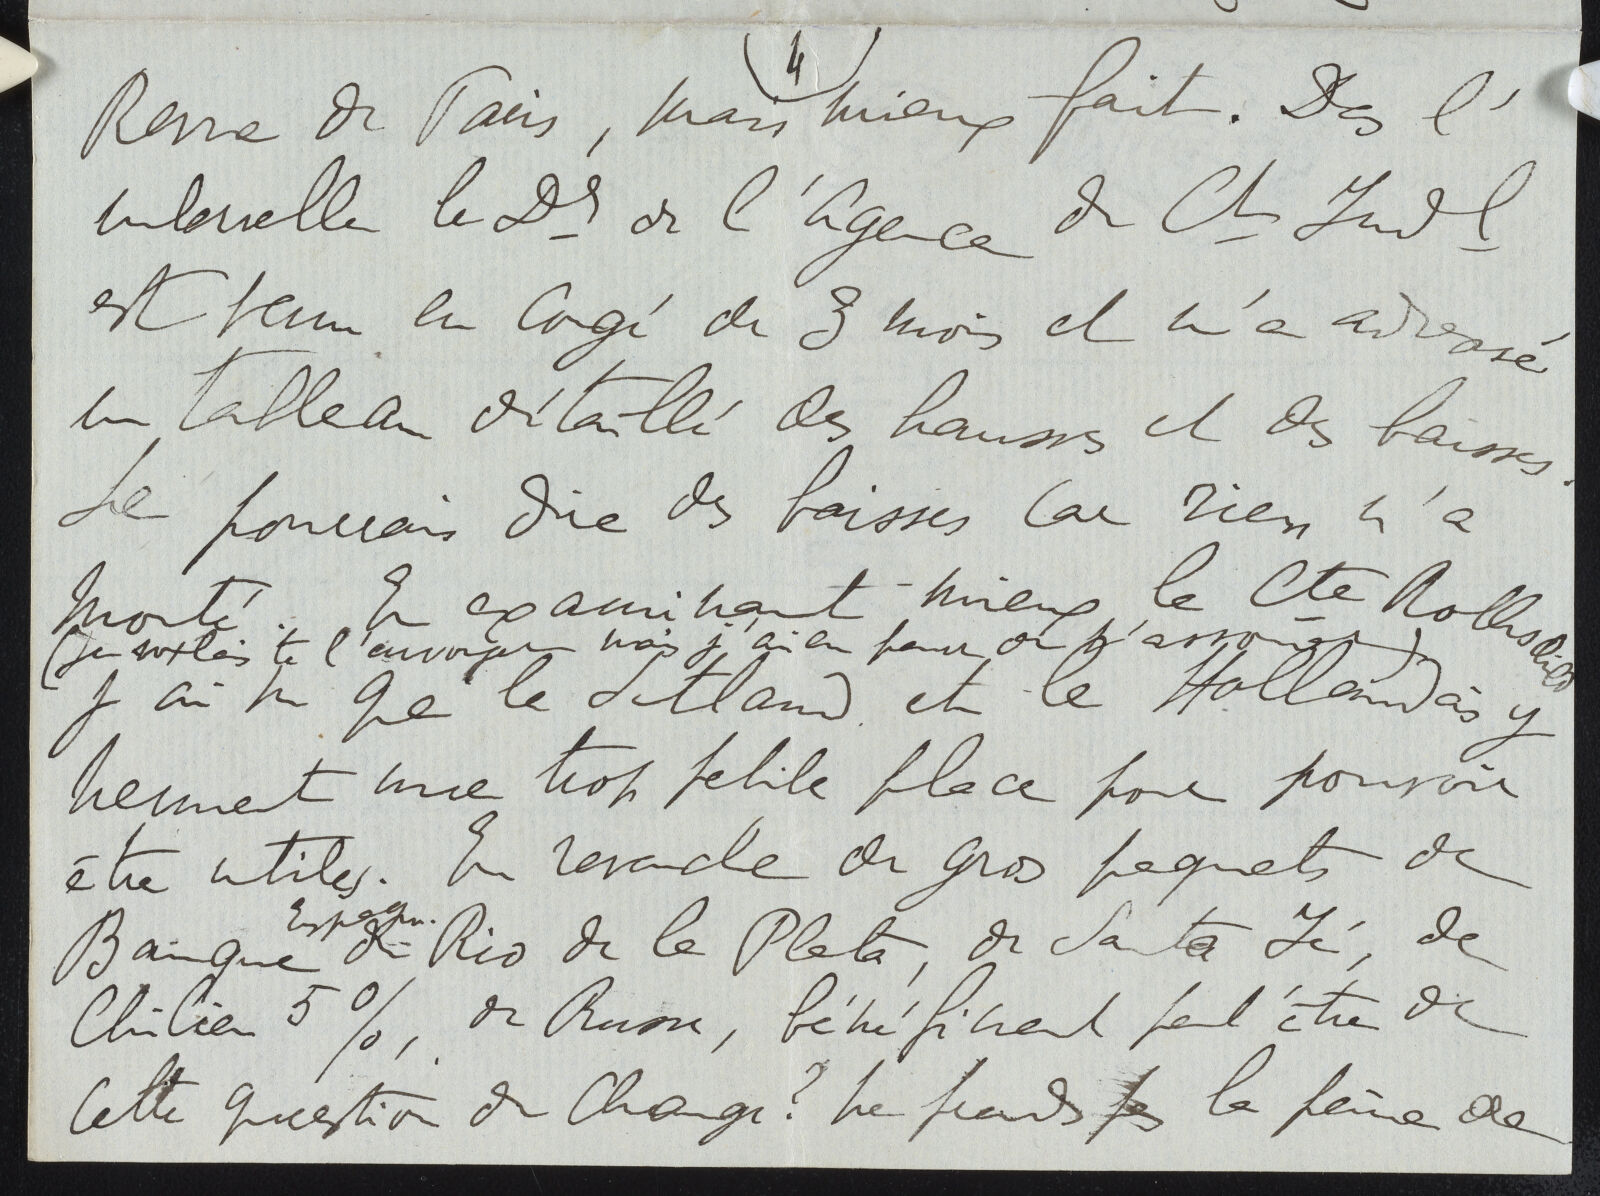 4
Revue de Paris, mais mieux fait. Des l'
intervalle le Dr de l'Agence du Ct Indl
est venu en congé de 3 mois et m'a adressé
un tableau détaillé des hausses et des baisses.
Je pourrais dire des baisses car rien n'a
monté. En examinant mieux le Cte Rothschild
(Je voulais te l'envoyer mais j'ai eu peur de t'assommer)
j'ai vu que le et le Hollandais y
tiennent une trop petite place pour pouvoir
être utiles. En revanche de gros paquets de
Banque Espagn. du Rio de la Plata, de Santa Fé, de
Chilien 5%, de Russe, bénéficient peut'être de
cette question du Change? Ne prends pas la peine de